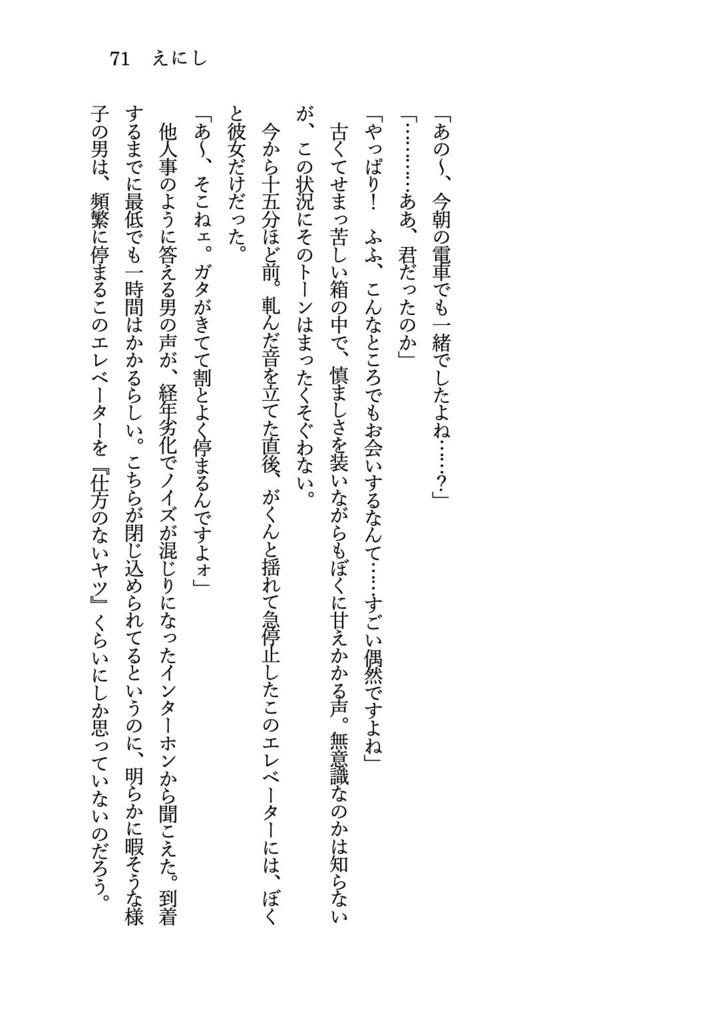 71　えにし
「あの〜、今朝の電車でも一緒でしたよね……？」
「…………ああ、君だったのか」
「やっぱり！　ふふ、こんなところでもお会いするなんて……すごい偶然ですよね」
　古くてせまっ苦しい箱の中で、慎ましさを装いながらもぼくに甘えかかる声。無意識なのかは知らない
が、この状況にそのトーンはまったくそぐわない。
　今から十五分ほど前。軋んだ音を立てた直後、がくんと揺れて急停止したこのエレベーターには、ぼく
と彼女だけだった。
「あ〜、そこねェ。ガタがきてて割とよく停まるんですよォ」
　他人事のように答える男の声が、経年劣化でノイズが混じりになったインターホンから聞こえた。到着
するまでに最低でも一時間はかかるらしい。こちらが閉じ込められてるというのに、明らかに暇そうな様
子の男は、頻繁に停まるこのエレベーターを『仕方のないヤツ』くらいにしか思っていないのだろう。